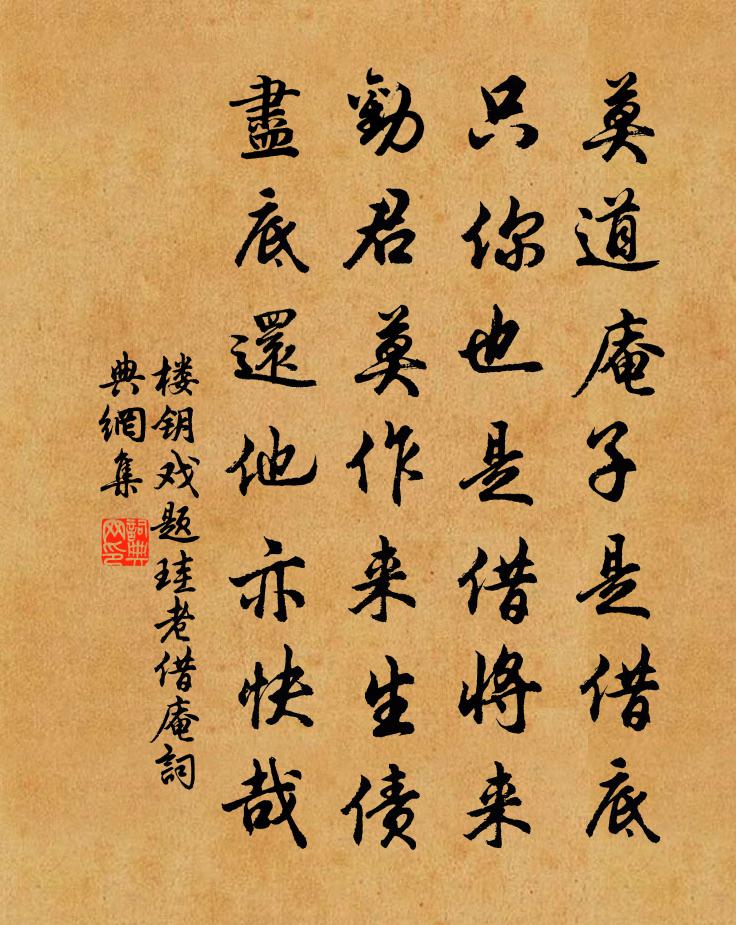 莫道庵子是借底
只你也是借将来
勸君莫作来生债
盡底還他亦快哉
楼钥戏题珪老借庵詞
典網集
詞典网印